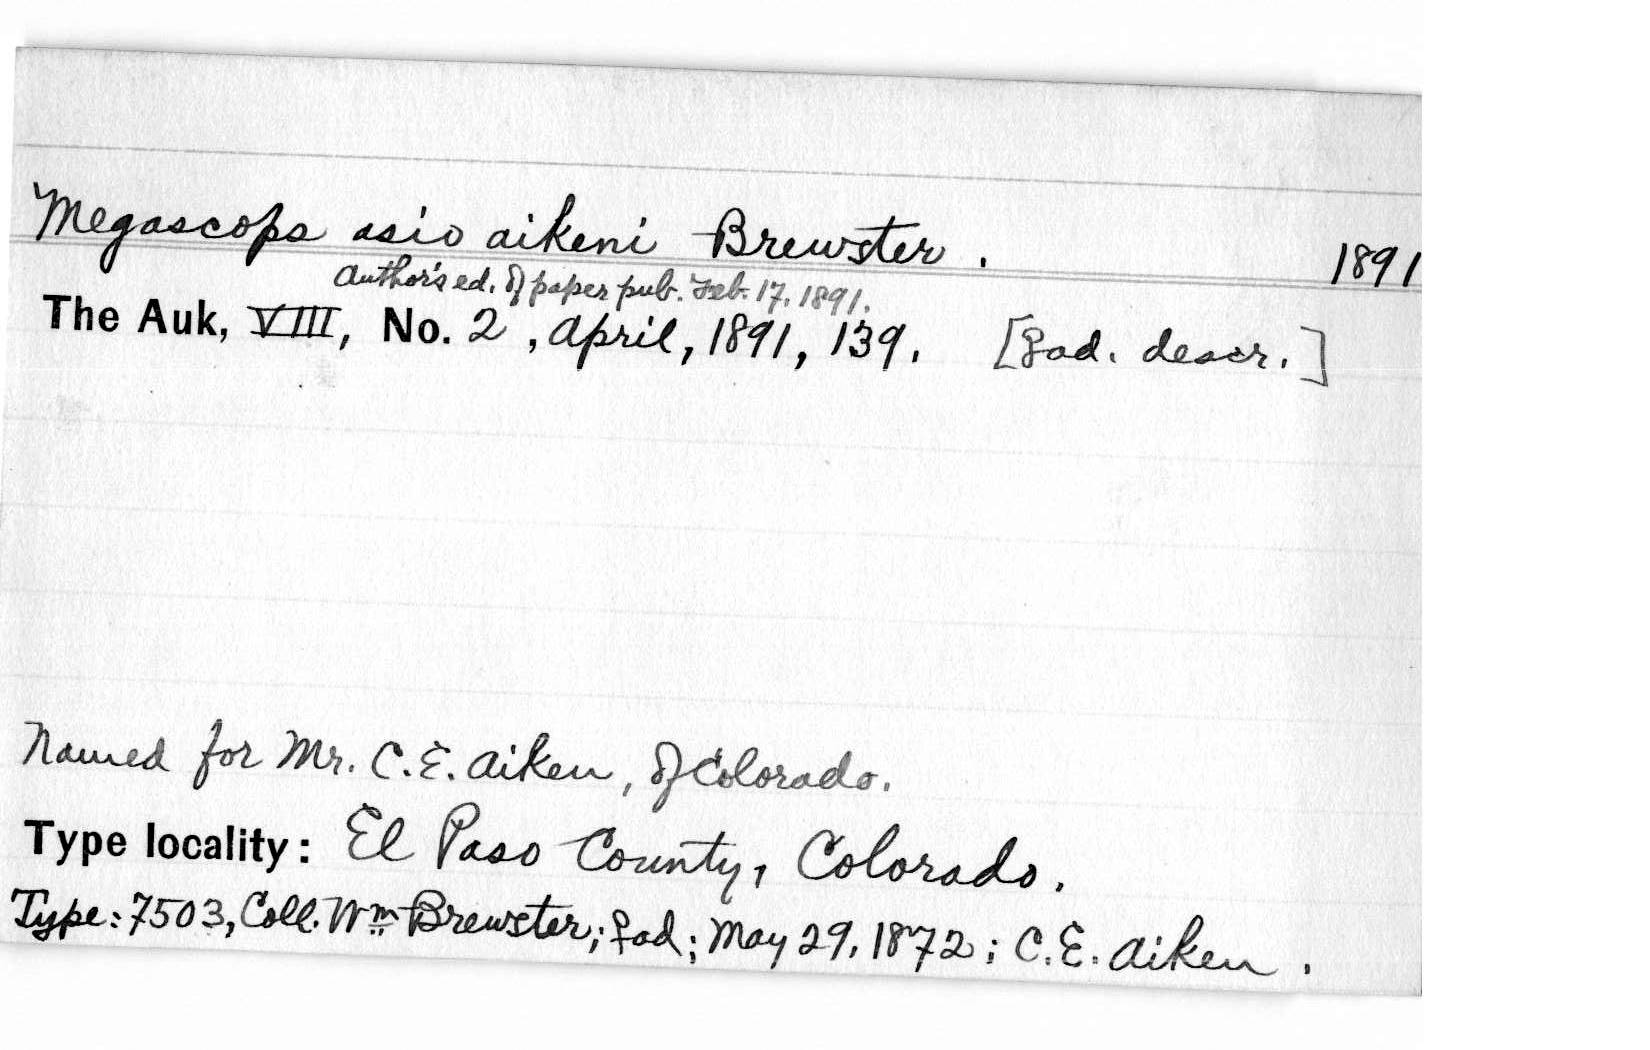 Megascops asio aikeni Brewster. 1891
Author's ed. of paper pub. Feb. 17, 1891.
The Auk, VIII, No. 2, April, 1891, 139. [♀ad. descr.]
Named for Mr. C. E. Aiken, of Colorado.
Type locality: El Paso County, Colorado.
Type: 7503, Coll. Wm Brewster; ♀ad; May 29, 1872; C. E. Aiken.